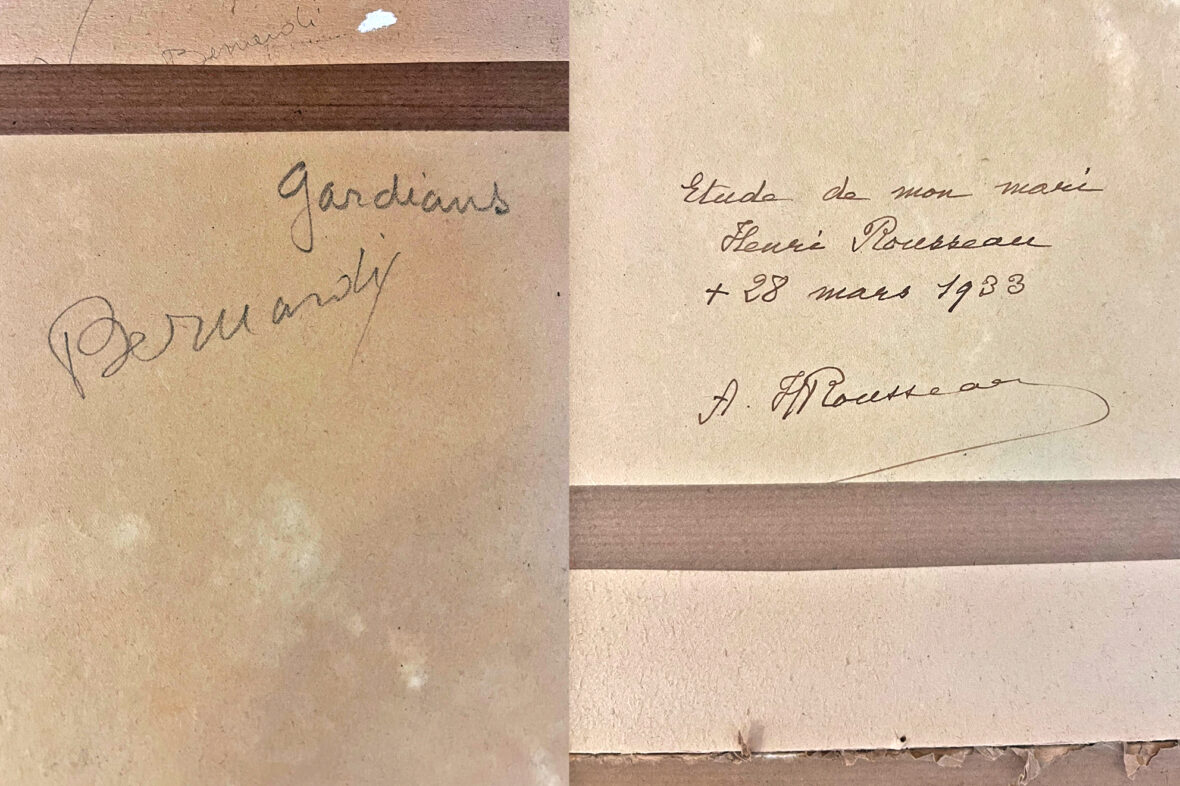 Bernardi
Gardians
Bernardi
Etude de mon mari
Henri Rousseau
+ 28 mars 1933
A. HRousseau